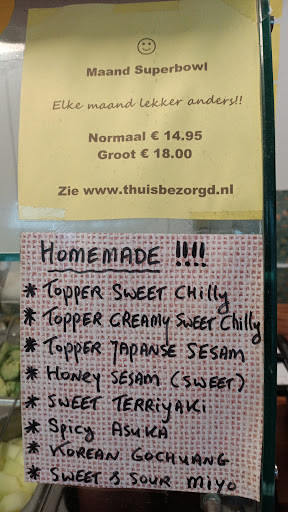 Maand Superbowl
Elke maand lekker anders!!
Normaal € 14.95
Groot € 18.00
Zie www.thuisbezorgd.nl
HOMEMADE !!!!
* TOPPER SWEET CHILLY
* TOPPER CREAMY SWEET CHILLY
* TOPPER JAPANSE SESAM
* HONEY SESAM (SWEET)
* SWEET TERRIYAKI
* SPICY ASUKA
* KOREAN GOCHUANG
* SWEET & SOUR MIYO